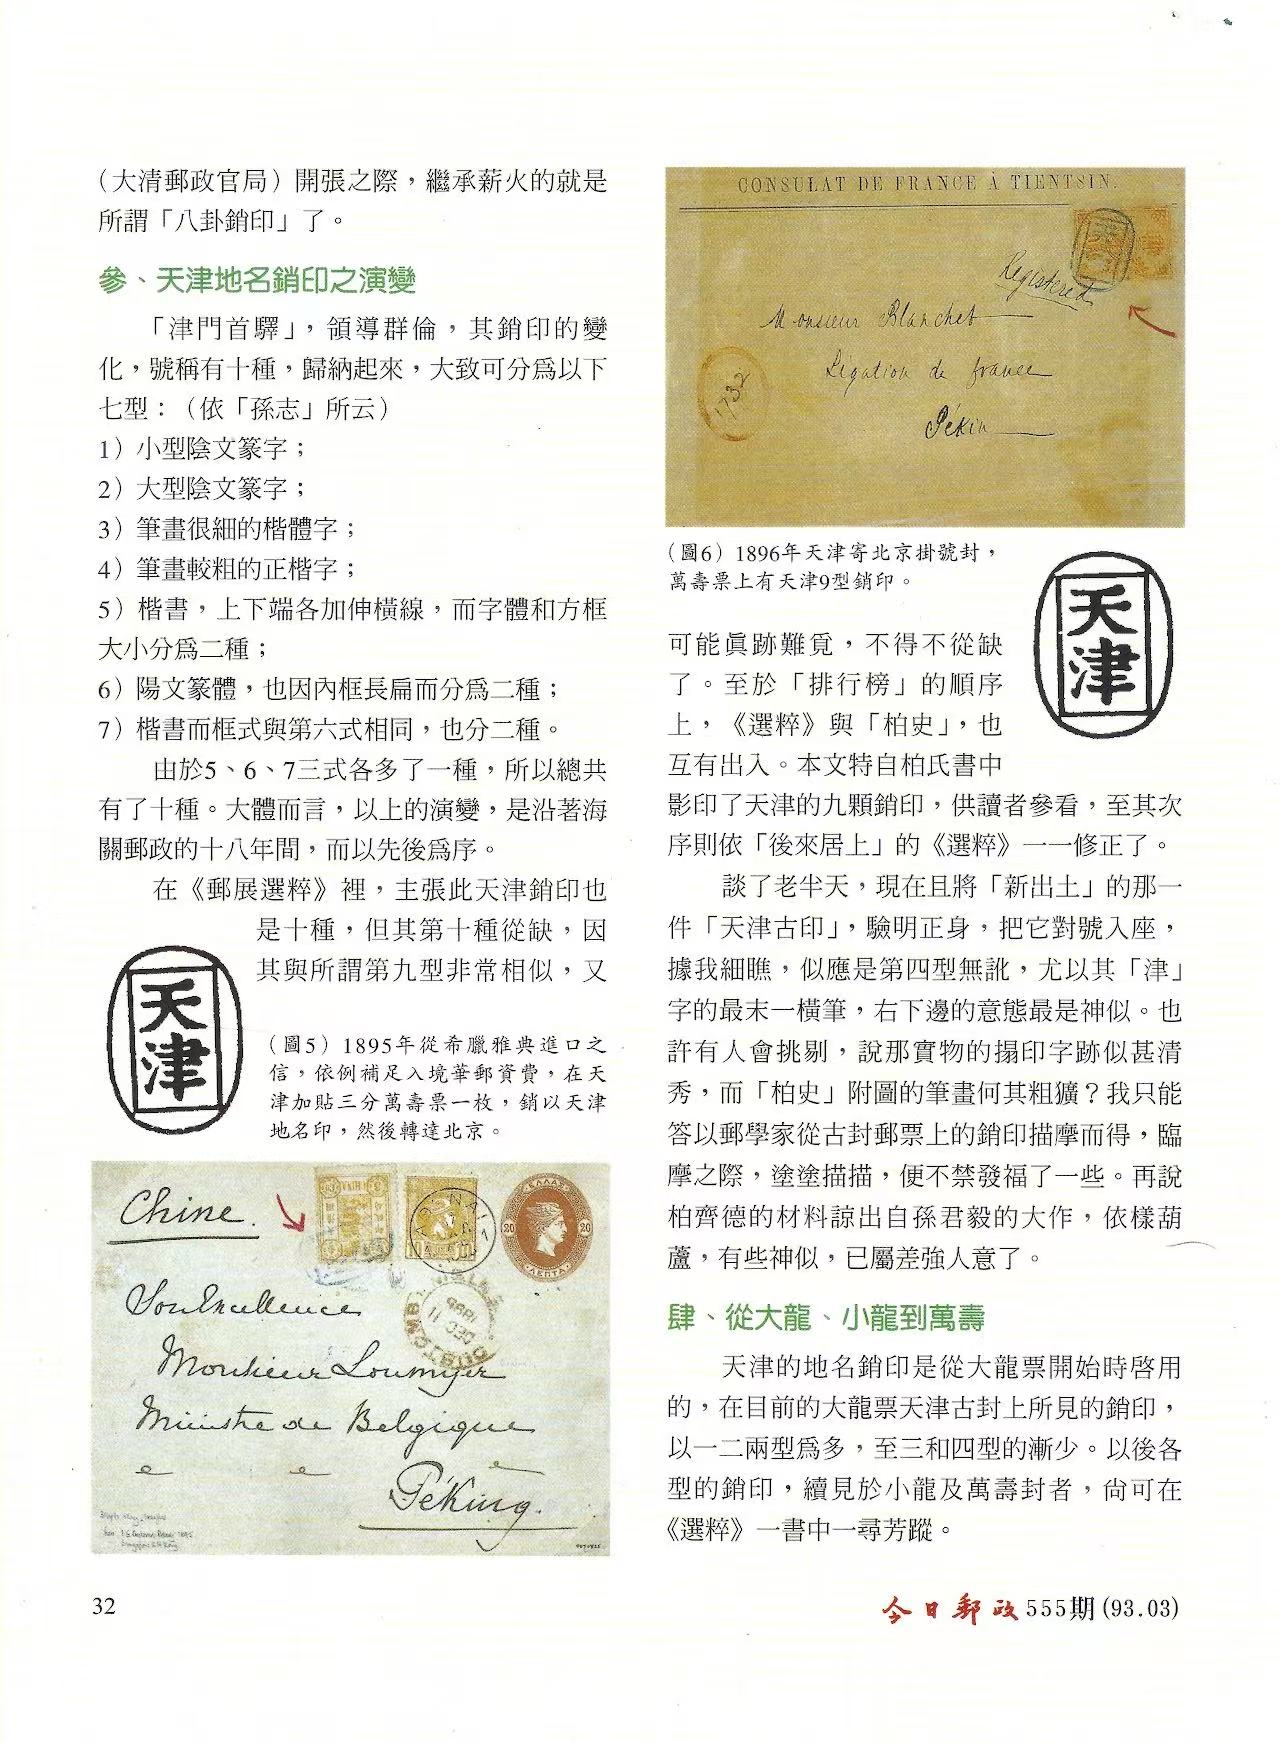 （大清郵政官局）開張之際，繼承薪火的就是
所謂「八卦銷印」了。
參、天津地名銷印之演變
「津門首驛」，領導群倫，其銷印的變
化，號稱有十種，歸納起來，大致可分爲以下
七型：（依「孫志」所云）
1）小型陰文篆字；
2）大型陰文篆字；
3）筆畫很細的楷體字；
4）筆畫較粗的正楷字；
5）楷書，上下端各加伸橫線，而字體和方框
大小分爲二種；
6）陽文篆體，也因內框長扁而分爲二種；
7）楷書而框式與第六式相同，也分二種。
由於5、6、7三式各多了一種，所以總共
有了十種。大體而言，以上的演變，是沿著海
關郵政的十八年間，而以先後爲序。
在《郵展選粹》裡，主張此天津銷印也
是十種，但其第十種從缺，因
其與所謂第九型非常相似，又
天津
（圖5）1895年從希臘雅典進口之
信，依例補足入境華郵資費，在天
津加貼三分萬壽票一枚，銷以天津
地名印，然後轉達北京。
Chine.
ΕΛΛΑΣ
20 20
ΛΕΠΤΑ
DEC 11
1895
Son Excellence
Monsieur Loumyer
Ministre de Belgique
Péking.
CONSULAT DE FRANCE À TIENTSIN.
天津
Registered
Monsieur Blanchet
Légation de france
1732
Pékin
（圖6）1896年天津寄北京掛號封，
萬壽票上有天津9型銷印。
天津
可能眞跡難覓，不得不從缺
了。至於「排行榜」的順序
上，《選粹》與「柏史」，也
互有出入。本文特自柏氏書中
影印了天津的九顆銷印，供讀者參看，至其次
序則依「後來居上」的《選粹》一一修正了。
談了老半天，現在且將「新出土」的那一
件「天津古印」，驗明正身，把它對號入座，
據我細瞧，似應是第四型無訛，尤以其「津」
字的最末一橫筆，右下邊的意態最是神似。也
許有人會挑剔，說那實物的搨印字跡似甚清
秀，而「柏史」附圖的筆畫何其粗獷？我只能
答以郵學家從古封郵票上的銷印描摩而得，臨
摩之際，塗塗描描，便不禁發福了一些。再說
柏齊德的材料諒出自孫君毅的大作，依樣葫
蘆，有些神似，已屬差強人意了。
肆、從大龍、小龍到萬壽
天津的地名銷印是從大龍票開始時啓用
的，在目前的大龍票天津古封上所見的銷印，
以一二兩型爲多，至三和四型的漸少。以後各
型的銷印，續見於小龍及萬壽封者，尙可在
《選粹》一書中一尋芳蹤。
32
今日郵政555期(93.03)